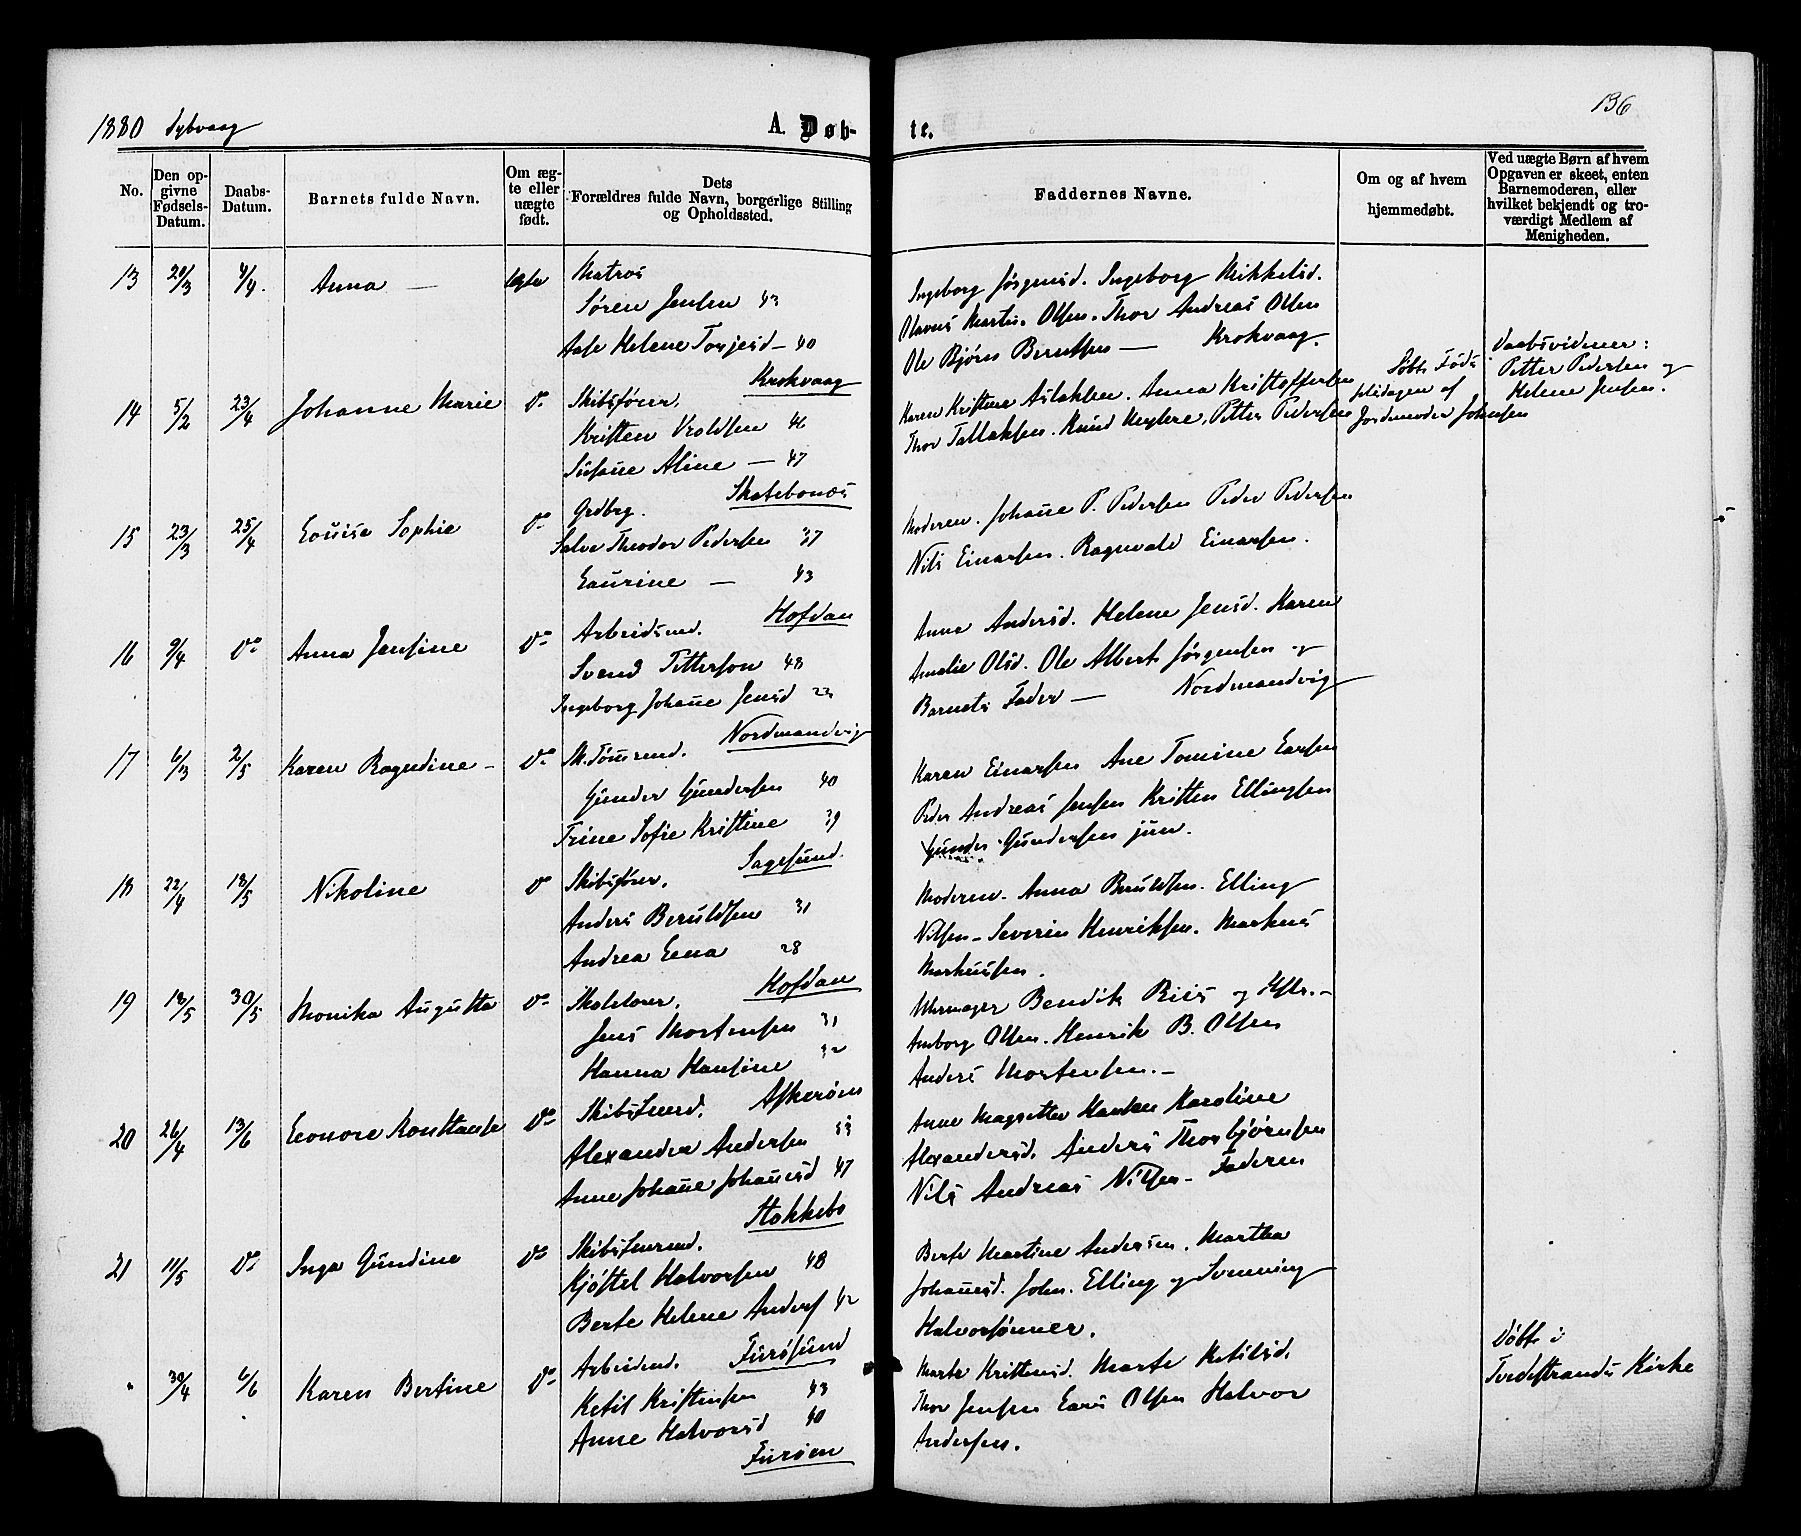 1880 Dybvaag
A. Døb-
te.
136
No.
Den op-
givne
Fødsels-
Datum.
Daabs-
Datum.
Barnets fulde Navn.
Om æg-
te eller
uægte
født.
Dets
Forældres fulde Navn, borgerlige Stilling
og Opholdssted.
Faddernes Navne.
Om og af hvem
hjemmedøbt.
Ved uægte Børn af hvem
Opgaven er skeet, enten
Barnemoderen, eller
hvilket bekjendt og tro-
værdigt Medlem af
Menigheden.
13 20/3 4/4. Anna — ægte
Matros
Søren Jensen 43
Aase Helene Torjesd — 40
Krokvaag
Ingeborg Jørgensd. Ingeborg Mikkelsd.
Olavus Martin Olsen. Thor Andreas Olsen
Ole Bjørn Berntsen — Krokvaag.
14 5/2 23/4 Johanne Marie Do
Skibsfører.
Kristen Vroldsen 46
Susanne Aline — 47
Skatebonæs
Karen Kristine Aslaksen. Anna Kristoffersen
Thor Tallaksen. Knud Petter Pedersen
Døbt Föd-
selsdagen af
Jordemoder Johnsen
Daabsvidner:
Petter Pedersen og
Helene Jensen.
15 23/3 25/4 Louise Sophie Do
Grdbrg.
Salve Theodor Pedersen 37
Laurine — 43
Hofdan
Moderen. Johanne P. Pedersen Peder Pedersen
Nils Einarsen. Ragnvald Einarsen.
16 9/4 Do Anna Jensine Do
Arbeidsmd.
Svend Pettersen 48
Ingeborg Johanne Jensd 23
Nordmandvig
Anne Andersd. Helene Jensd. Karen
Amalie Olsd. Ole Albert Jørgensen og
Barnets Fader — Nordmandvig
17 6/3 2/5 Karen Ragndine — Do
Sk.Tømrmd.
Gunder Gundersen 40
Trine Sofie Kristine 39
Sagesund.
Karen Einarsen Ane Tomine Larsen
Peder Andreas Jensen Kristen Ellingsen
Gunder Gundersen jun.
18 22/4 18/5 Nikoline Do
Skibsfører.
Anders Beruldsen 31
Andrea Lena 28
Hofdan
Moderen. Anna Beruldsen. Elling
Nilsen — Severin Henriksen. Markus
Markussen.
19 18/5 30/5 Monika Augusta Do
Skolelærer.
Jens Mortensen 31
Hanna Hansine 32
Askerøen
Uhrmager Bendik Riis og Hstr. —
Amborg Olsen. Henrik B. Olsen
Anders Mortensen. —
20 26/4 13/6 Leonore Konstanse Do
Skibstmrd.
Alexander Andersen 53
Anne Johanne Johannesd 47
Stokkebo
Anne Magrethe Hansen Karoline
Alexandersd. Anders Thorbjørnsen
Nils Andreas Nilsen — Faderen
21 11/5 Do Inga Gundine Do
Skibstmrmd.
Kjøstel Halvorsen 48
Berte Helene Anders 42
Furøsund
Berte Martine Andersen. Martha
Johannesd. John. Elling og Svenning
Halvorsønner.
" 30/4 6/6 Karen Bertine Do
Arbeidmd.
Ketil Kristensen 43
Anne Halvorsd 40
Furøen
Marte Kristensd. Marte Ketilsd.
Thor Jensen Lars Olsen Halvor
Andersen.
Døbt i
Tvedestrands Kirke